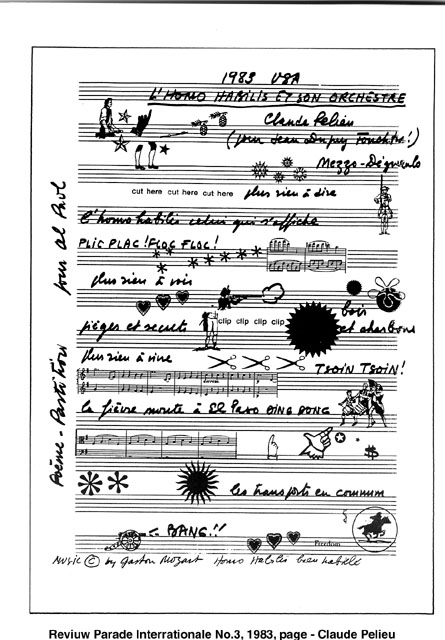 1983 USA
L'HOMO HABILIS ET SON ORCHESTRE
Claude Pelieu
(pour Jean Dupuy
Mezzo-Dégueulo
cut here cut here cut here plus rien à dire
l'homo habilis celui qui s'affiche
PLIC PLAC! FLOC FLOC!
plus rien à voir
bois
pièges et secrets clip clip clip clip et charbons
plus rien à vivre
TSOIN TSOIN!
la fièvre monte à El Paso DING DONG
$
les transports en commun
<- BANG!!
Freedom
MUSIC © by Gaston Mozart Homo Habilis bien habillé
Poème-Partition pour al Paul
Reviuw Parade Interrationale No.3, 1983, page - Claude Pelieu